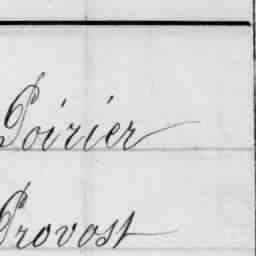 Poirier
Provost